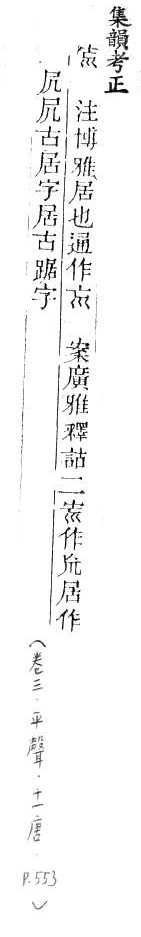 集韻考正
注博雅居也通作 案廣雅釋詁二 作 居作
凥凥古居字居古踞字
（卷三．平聲．十一唐．P.553）